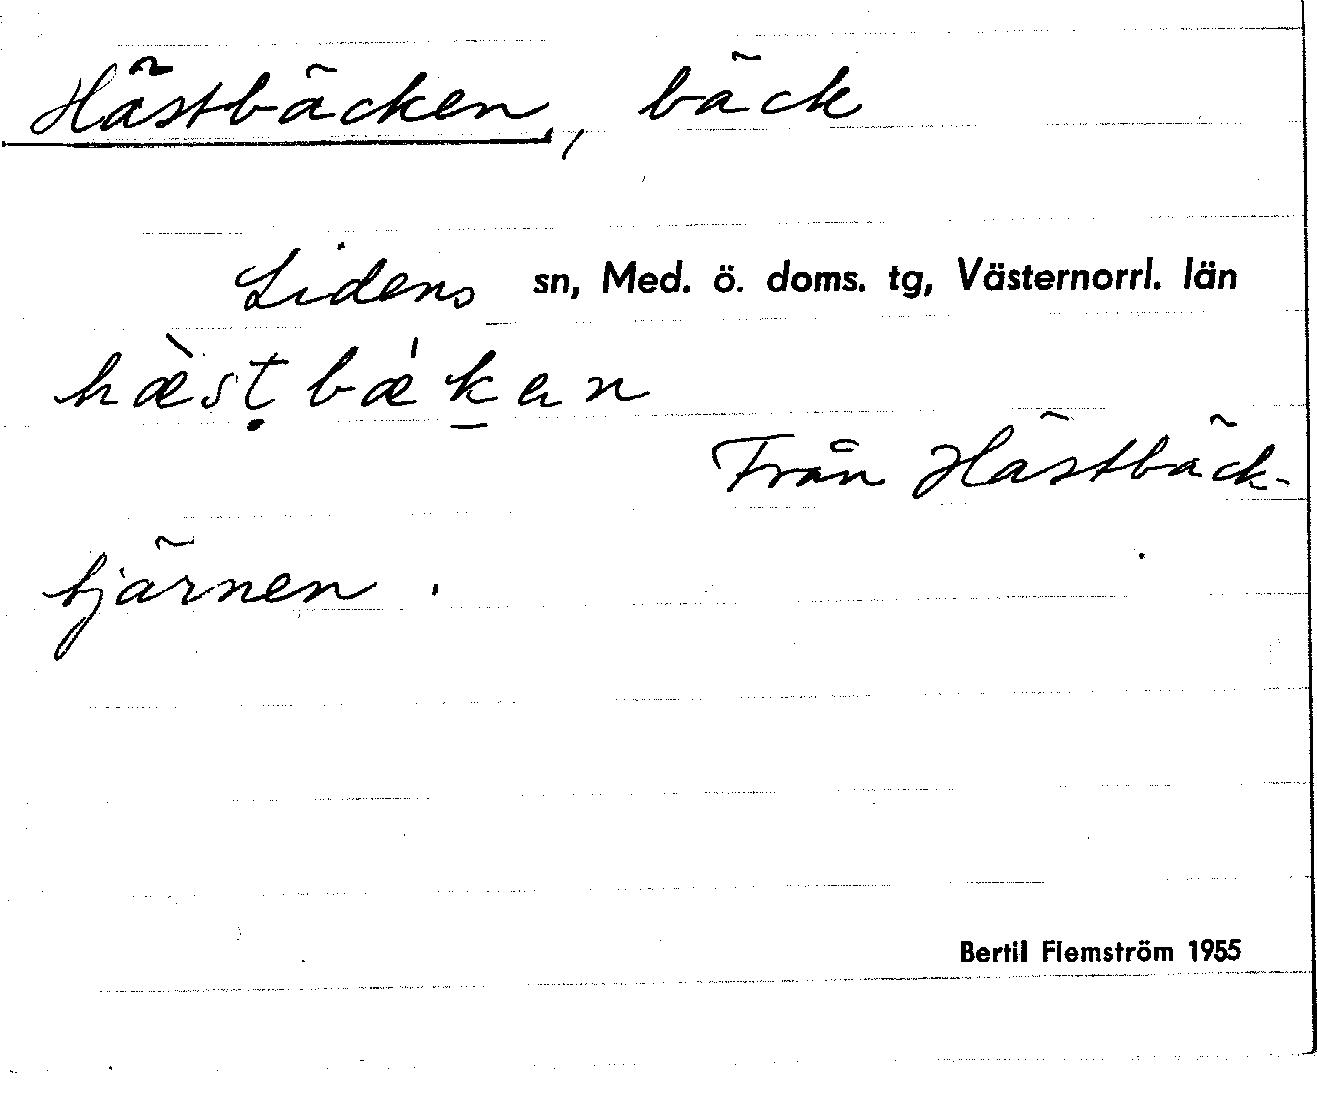 Hästbäcken, bäck
Lidens sn, Med. ö. doms. tg, Västernorrl. län
hæ̀sṭbæ̍k̠en
Från Hästbäck-
tjärnen.
Bertil Flemström 1955